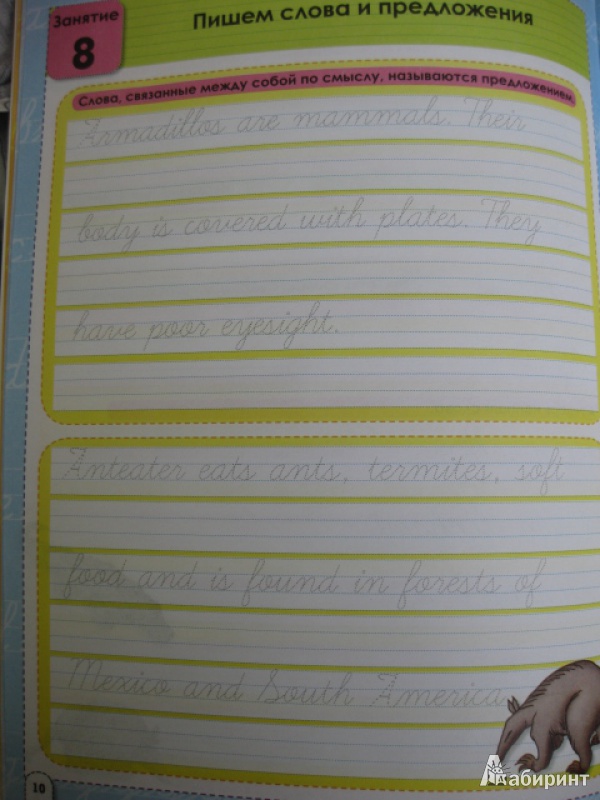 Занятие
8
Пишем слова и предложения
Слова, связанные между собой по смыслу, называются предложением.
Armadillos are mammals. Their
body is covered with plates. They
have poor eyesight.
Anteater eats ants, termites, soft
food and is found in forests of
Mexico and South America.
10
Лабиринт